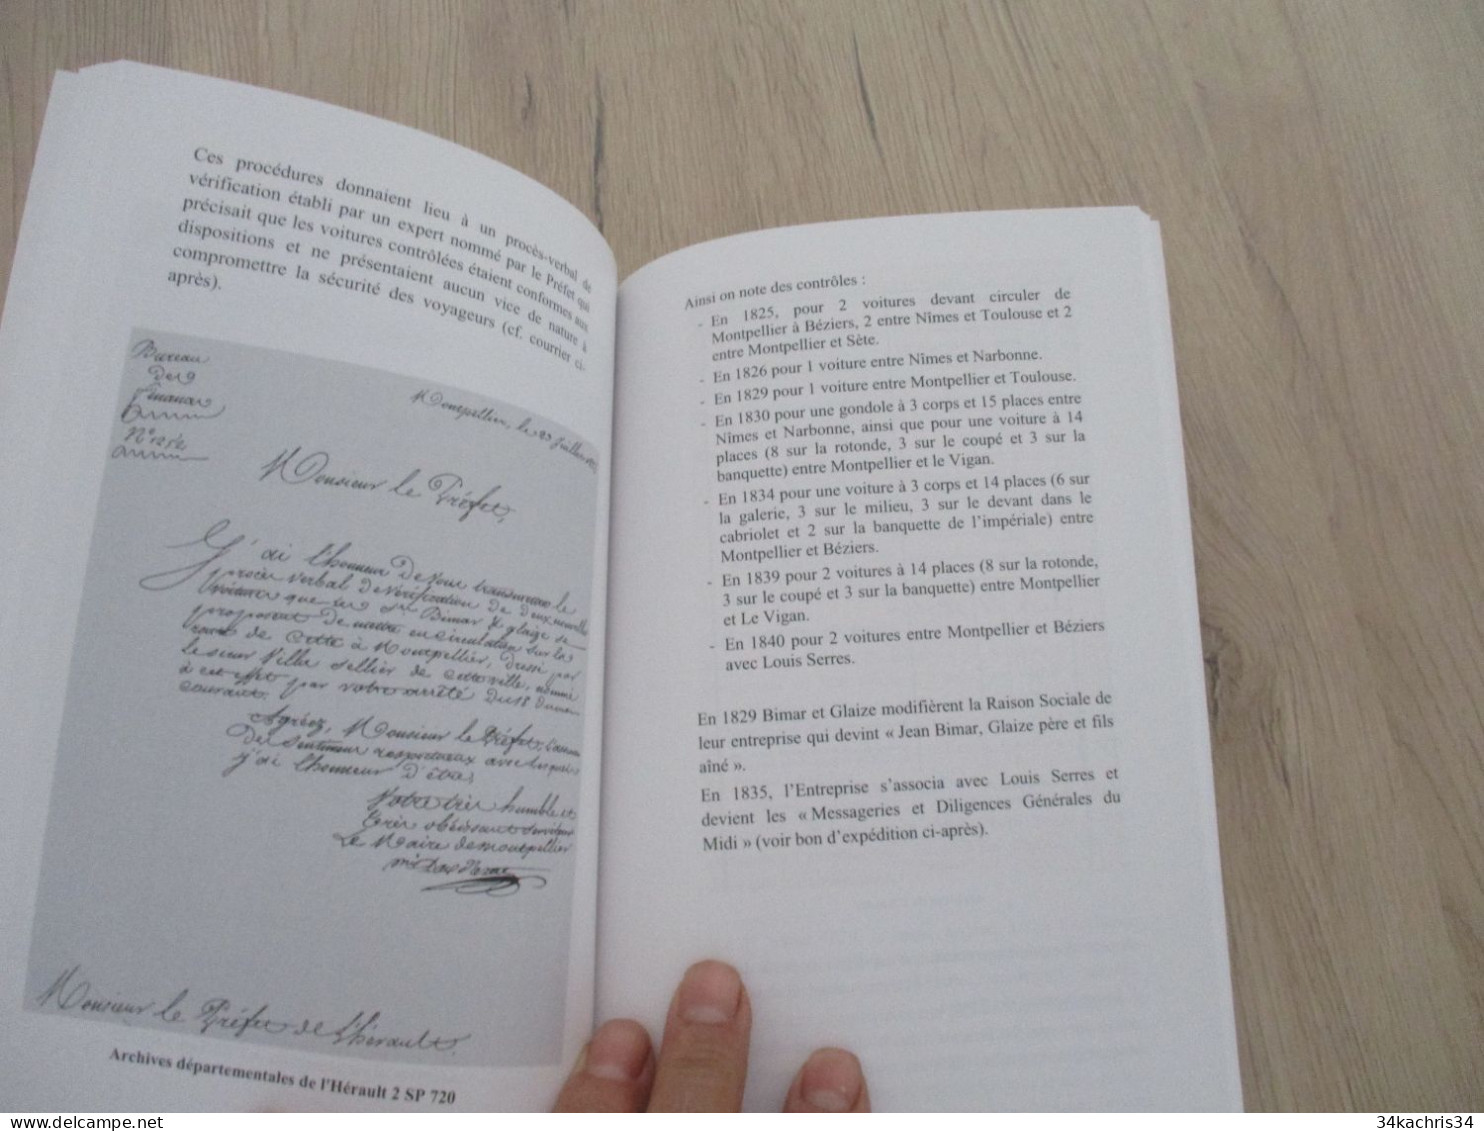 Ces procédures donnaient lieu à un procès-verbal de
vérification établi par un expert nommé par le Préfet qui
précisait que les voitures contrôlées étaient conformes aux
dispositions et ne présentaient aucun vice de nature à
compromettre la sécurité des voyageurs (cf. courrier ci-
après).
Bureau
des
Finances
N° 1252
Montpellier, le 23 Juillet
Monsieur le Préfet,
J'ai l'honneur de vous transmettre le
procès verbal de vérification de deux nouvelles
voitures que les Srs Bimar & glaize se
proposent de mettre en circulation sur la
route de Cette à Montpellier, dressé par
le sieur Ville sellier de cette ville, nommé
à cet effet par votre arrêté du 18 du mois
courant.
Agréez, Monsieur le Préfet, l'assurance
des sentimens respectueux avec lesquels
j'ai l'honneur d'être,
Votre très humble et
très obéissant serviteur
Le Maire de montpellier
Monsieur le Préfet de l'hérault.
Archives départementales de l'Hérault 2 SP 720
Ainsi on note des contrôles :
- En 1825, pour 2 voitures devant circuler de
Montpellier à Béziers, 2 entre Nîmes et Toulouse et 2
entre Montpellier et Sète.
- En 1826 pour 1 voiture entre Nîmes et Narbonne.
- En 1829 pour 1 voiture entre Montpellier et Toulouse.
- En 1830 pour une gondole à 3 corps et 15 places entre
Nîmes et Narbonne, ainsi que pour une voiture à 14
places (8 sur la rotonde, 3 sur le coupé et 3 sur la
banquette) entre Montpellier et le Vigan.
- En 1834 pour une voiture à 3 corps et 14 places (6 sur
la galerie, 3 sur le milieu, 3 sur le devant dans le
cabriolet et 2 sur la banquette de l'impériale) entre
Montpellier et Béziers.
- En 1839 pour 2 voitures à 14 places (8 sur la rotonde,
3 sur le coupé et 3 sur la banquette) entre Montpellier
et Le Vigan.
- En 1840 pour 2 voitures entre Montpellier et Béziers
avec Louis Serres.
En 1829 Bimar et Glaize modifièrent la Raison Sociale de
leur entreprise qui devint « Jean Bimar, Glaize père et fils
aîné ».
En 1835, l'Entreprise s'associa avec Louis Serres et
devient les « Messageries et Diligences Générales du
Midi » (voir bon d'expédition ci-après).
34kachris34